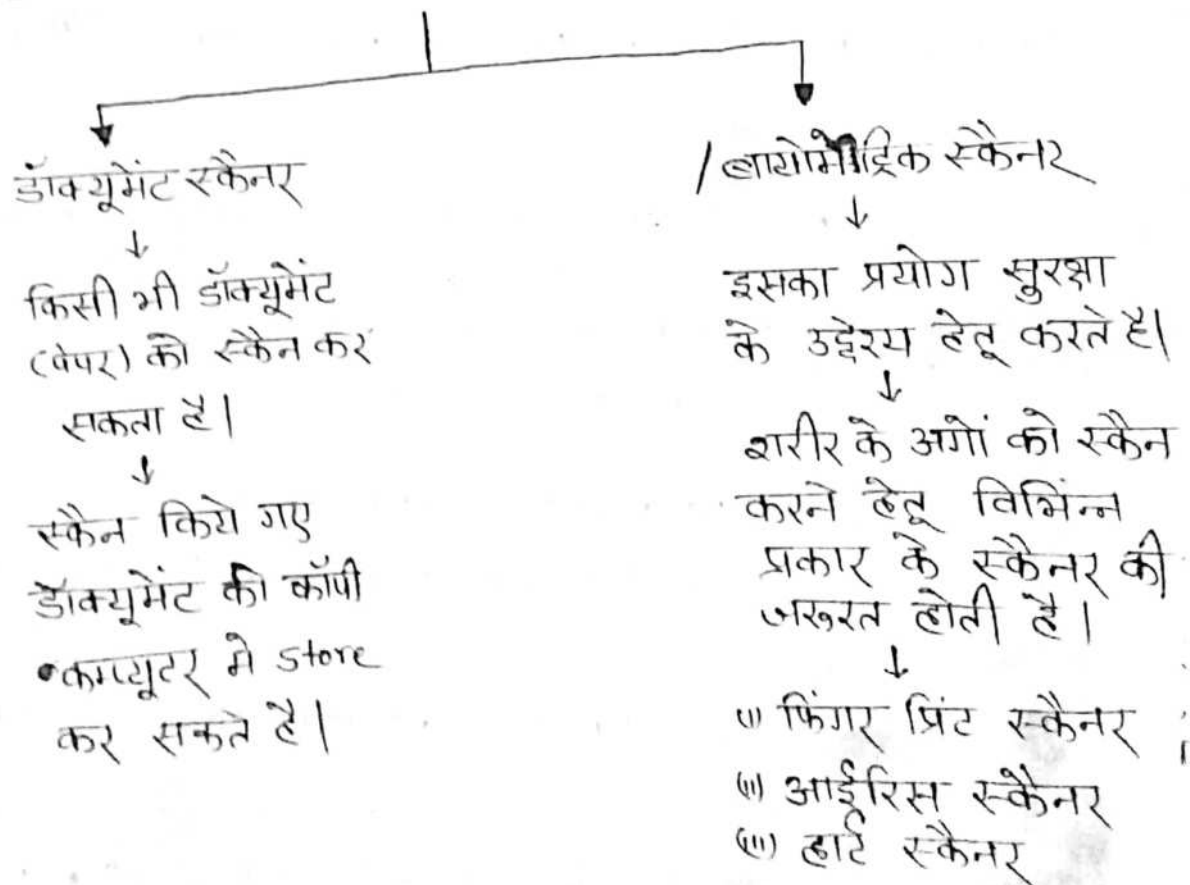 डॉक्यूमेंट स्कैनर
↓
किसी भी डॉक्यूमेंट
(पेपर) को स्कैन कर
सकता है।
↓
स्कैन किये गए
डॉक्यूमेंट की कॉपी
कम्प्यूटर मे store
कर सकते है।
/बायोमैट्रिक स्कैनर
↓
इसका प्रयोग सुरक्षा
के उद्देश्य हेतू करते है।
↓
शरीर के अगों को स्कैन
करने हेतू विभिंन्न
प्रकार के स्कैनर की
जरुरत होती है।
↓
(i) फिंगर प्रिंट स्कैनर
(ii) आईरिस स्कैनर
(iii) हार्ट स्कैनर